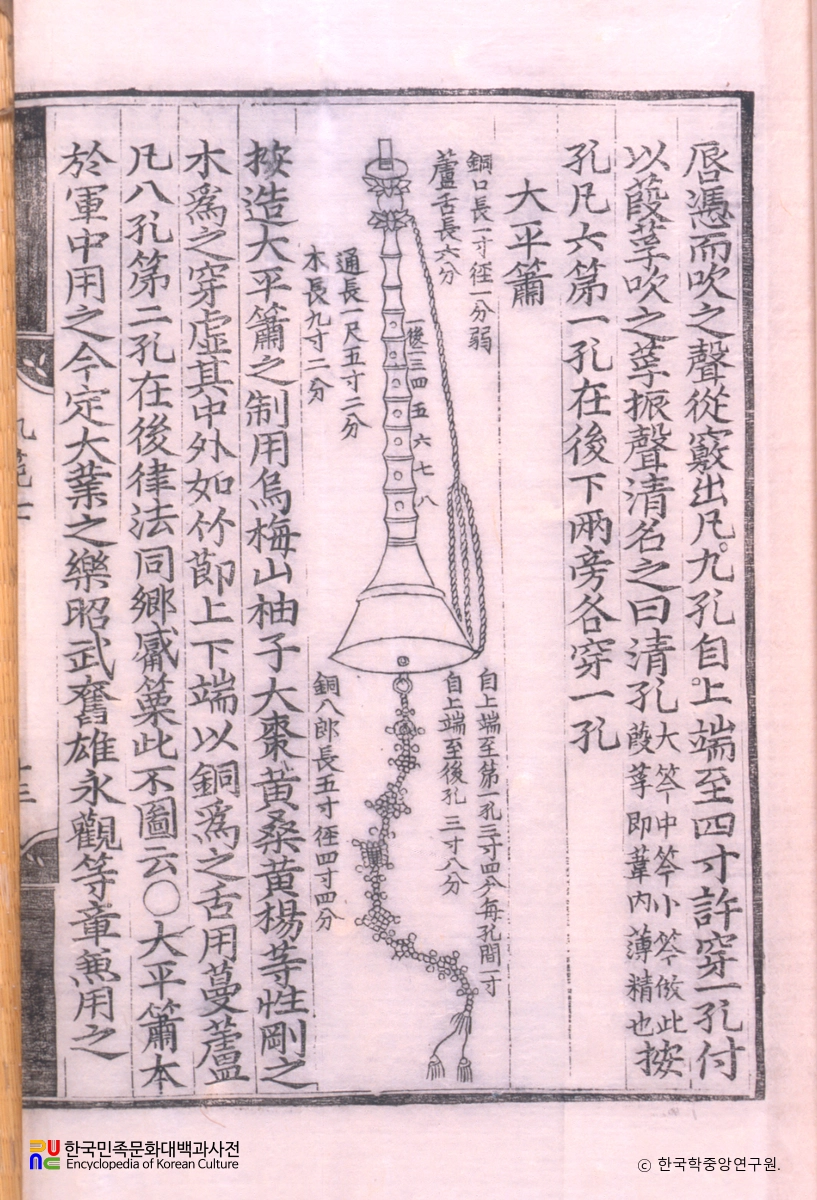 唇憑而吹之聲從竅出凡九孔自上端至四寸許穿一孔付
以葭莩吹之莩振聲清名之曰清孔大笒中笒小笒倣此
葭莩即葦內薄精也按
孔凡六第一孔在後下兩旁各穿一孔
大平簫
銅口長一寸徑一分弱
蘆舌長六分
一後二三四五六七八
通長一尺五寸二分
木長九寸二分
自上端至第一孔三寸四分每孔間一寸
自上端至後孔三寸八分
銅八郎長五寸徑四寸四分
按造大平簫之制用烏梅山柚子大棗黃桑黃楊等性剛之
木爲之穿虛其中外如竹節上下端以銅爲之舌用蔓蘆
凡八孔第二孔在後律法同鄕觱篥此不圖云〇大平簫本
於軍中用之今定大業之樂昭武奮雄永觀等章兼用之
한국민족문화대백과사전
Encyclopedia of Korean Culture
© 한국학중앙연구원.